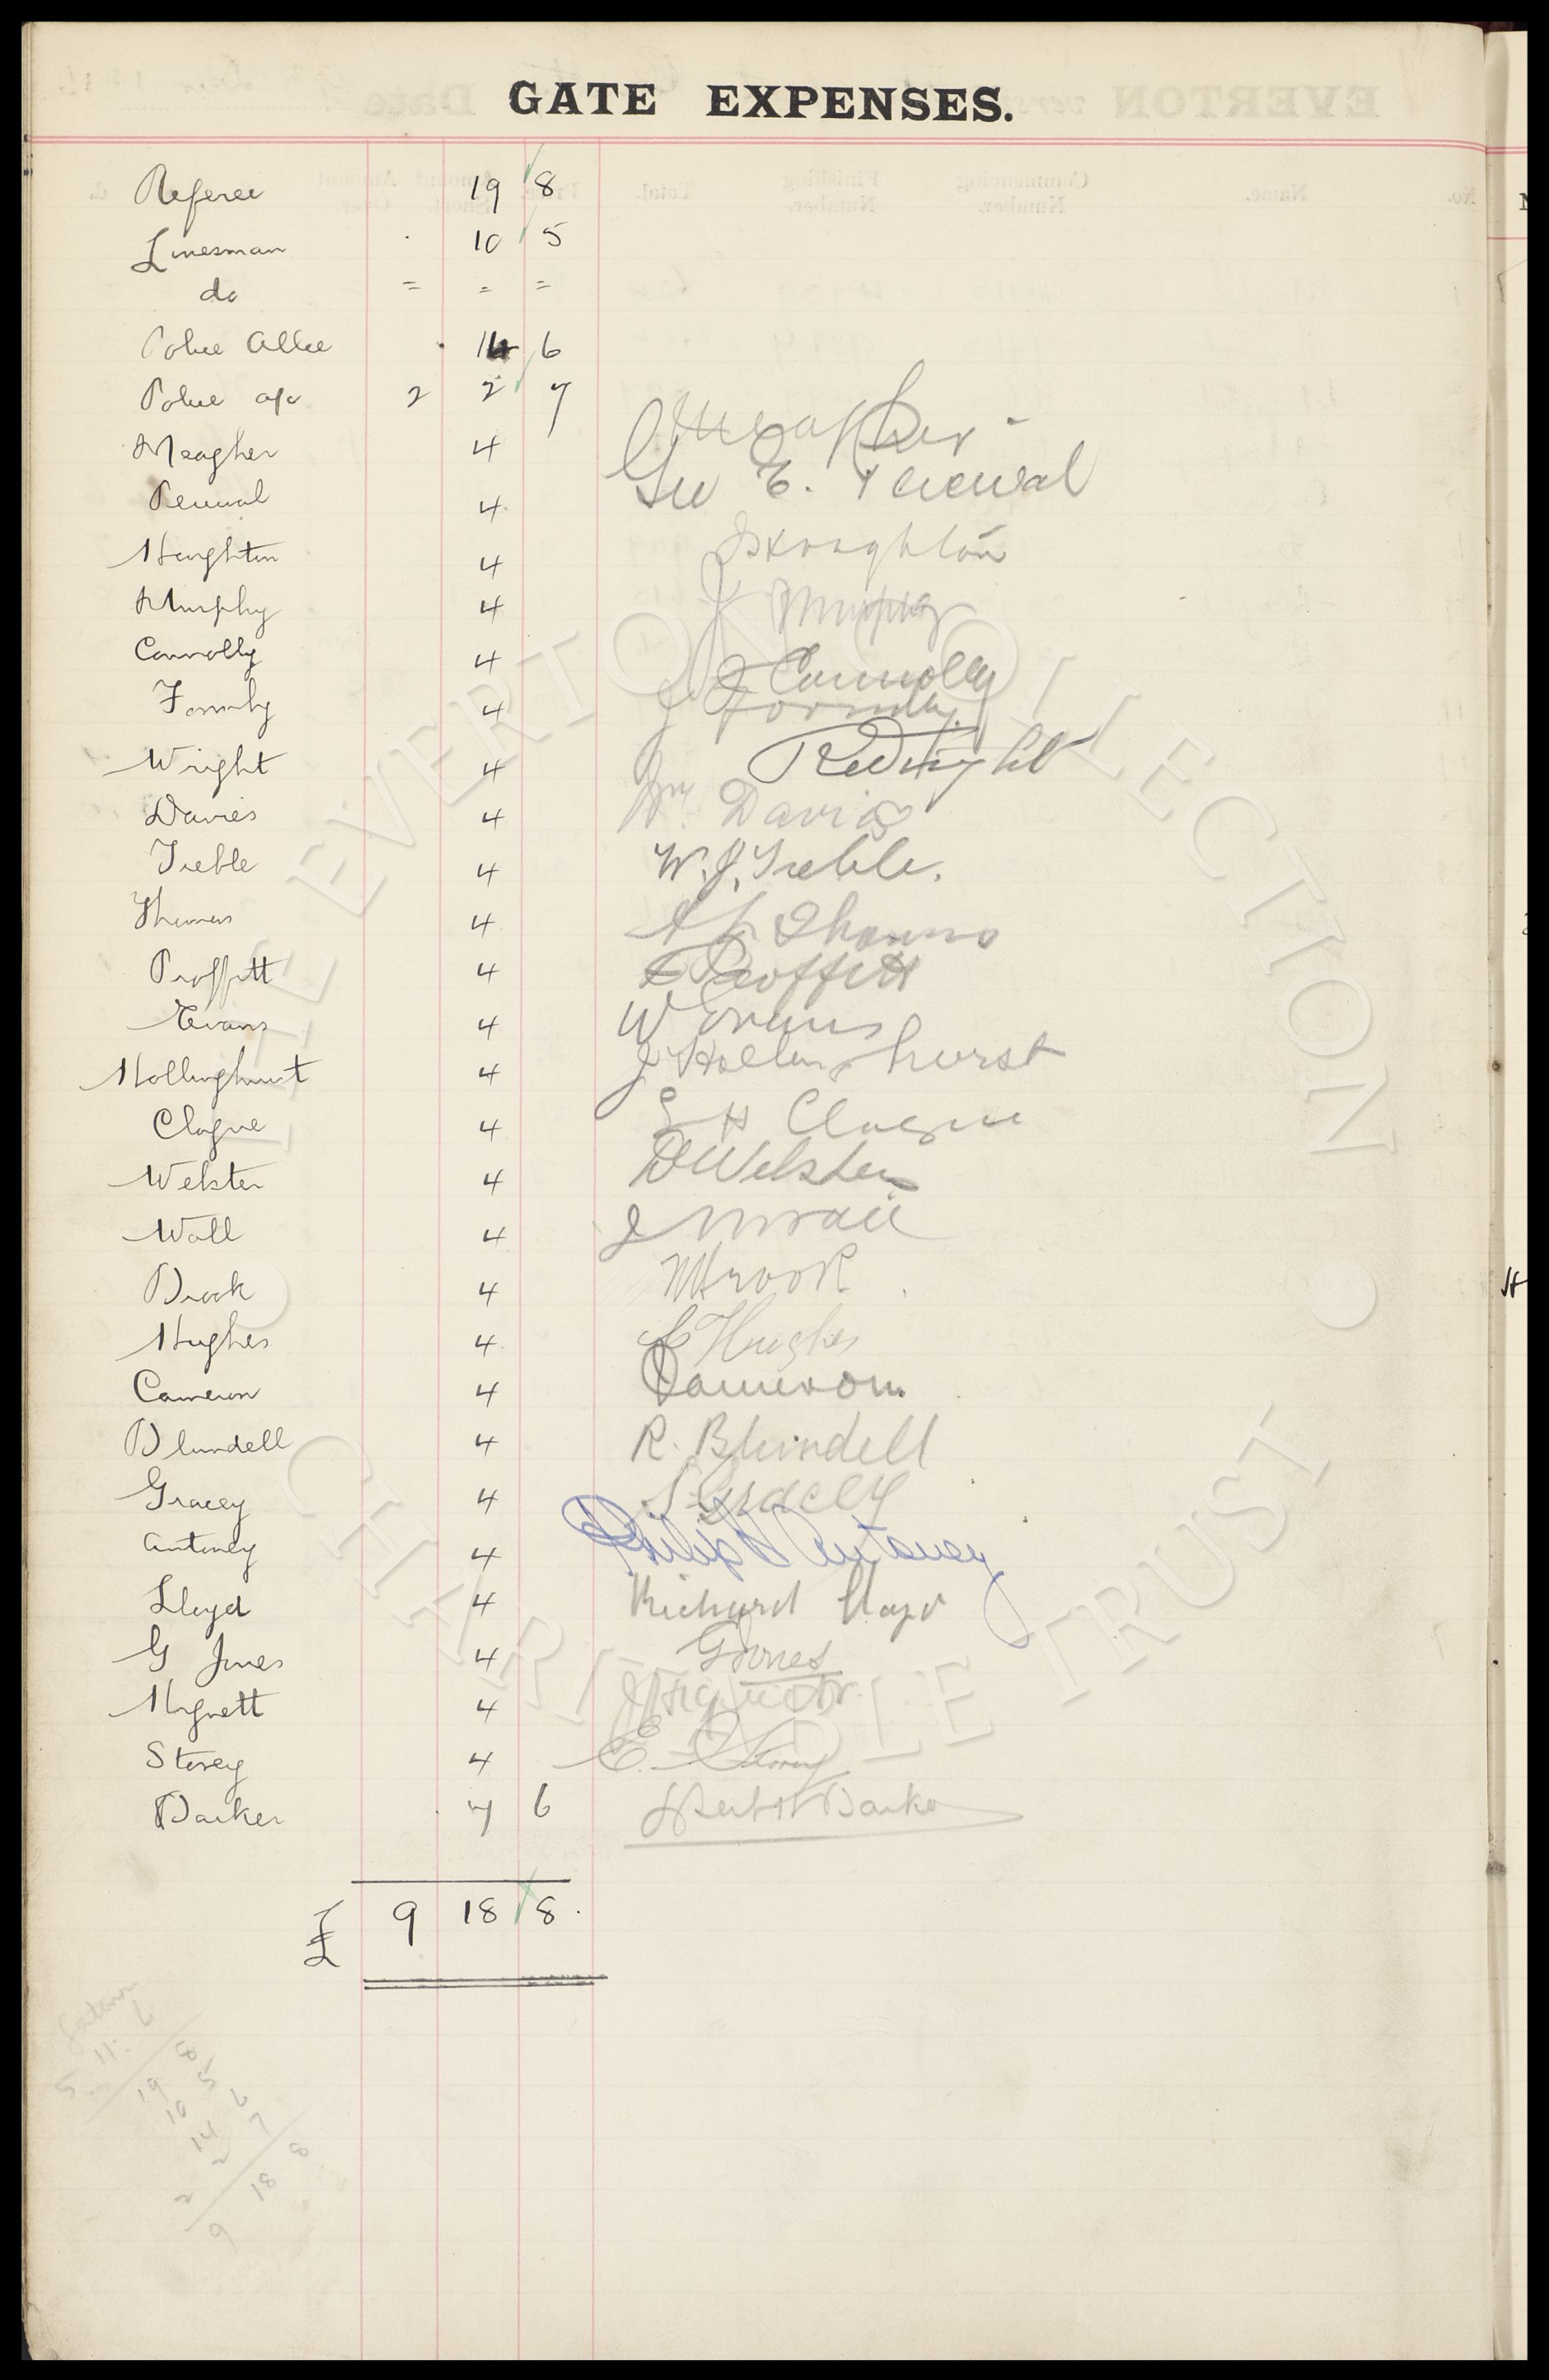 GATE EXPENSES.
Referee 19 8
Linesman 10 5
do = = =
Police 14 6
Police a/c 2 2 7
Meagher 4 Meagher
Percival 4 Geo E. Percival
Houghton 4 Houghton
Murphy 4 J Murphy
Connolly 4 J Connolly
Formby 4 J Formby
Wright 4 R Wright
Davies 4 Wm Davies
Treble 4 W. J. Treble.
Thomas 4 Thomas
Proffitt 4 Proffitt
Evans 4 W Evans
Hollinghurst 4 J Hollinghurst
Clague 4 H Clague
Webster 4 D Webster
Wall 4 J Wall
Brook 4 Brook
Hughes 4 Hughes
Cameron 4 Cameron
Blundell 4 R. Blundell
Gracey 4 Gracey
Antoney 4 Philip H Antoney
Lloyd 4 Richard Lloyd
G Jones 4 G Jones
Hignett 4 Hignett
Storey 4 E. Storey
Barker 7 6 Barker
£ 9 18 8
5. 11. 6
19 8
10 5
14 6
2 2 7
9 18 8
THE EVERTON COLLECTION CHARITABLE TRUST